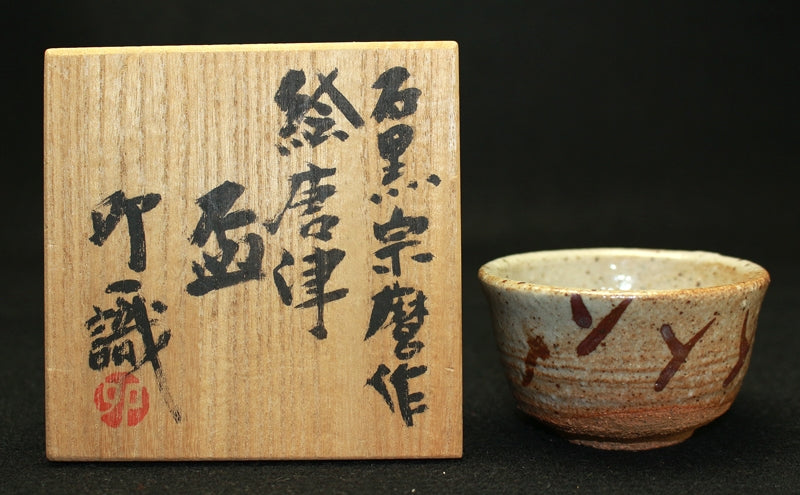 石黒宗麿作
絵唐津
盃
卯一識